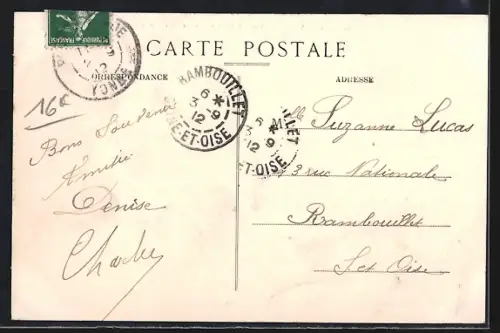 CARTE POSTALE
CORRESPONDANCE
ADRESSE
RAMBOUILLET
6 *
3 -9
12
SEINE-ET-OISE
6 *
3 9
12
ET-OISE
16c
Bons Souvenir
Amitié
Denise
Charles
Mlle Suzanne Lucas
3 rue Nationale
Rambouillet
S et Oise